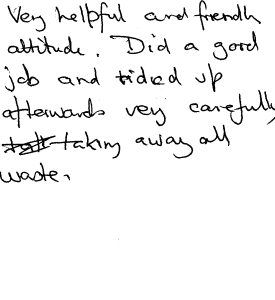 Very helpful and friendly
attitude. Did a good
job and tidied up
afterwards very carefully
taking away all
waste.